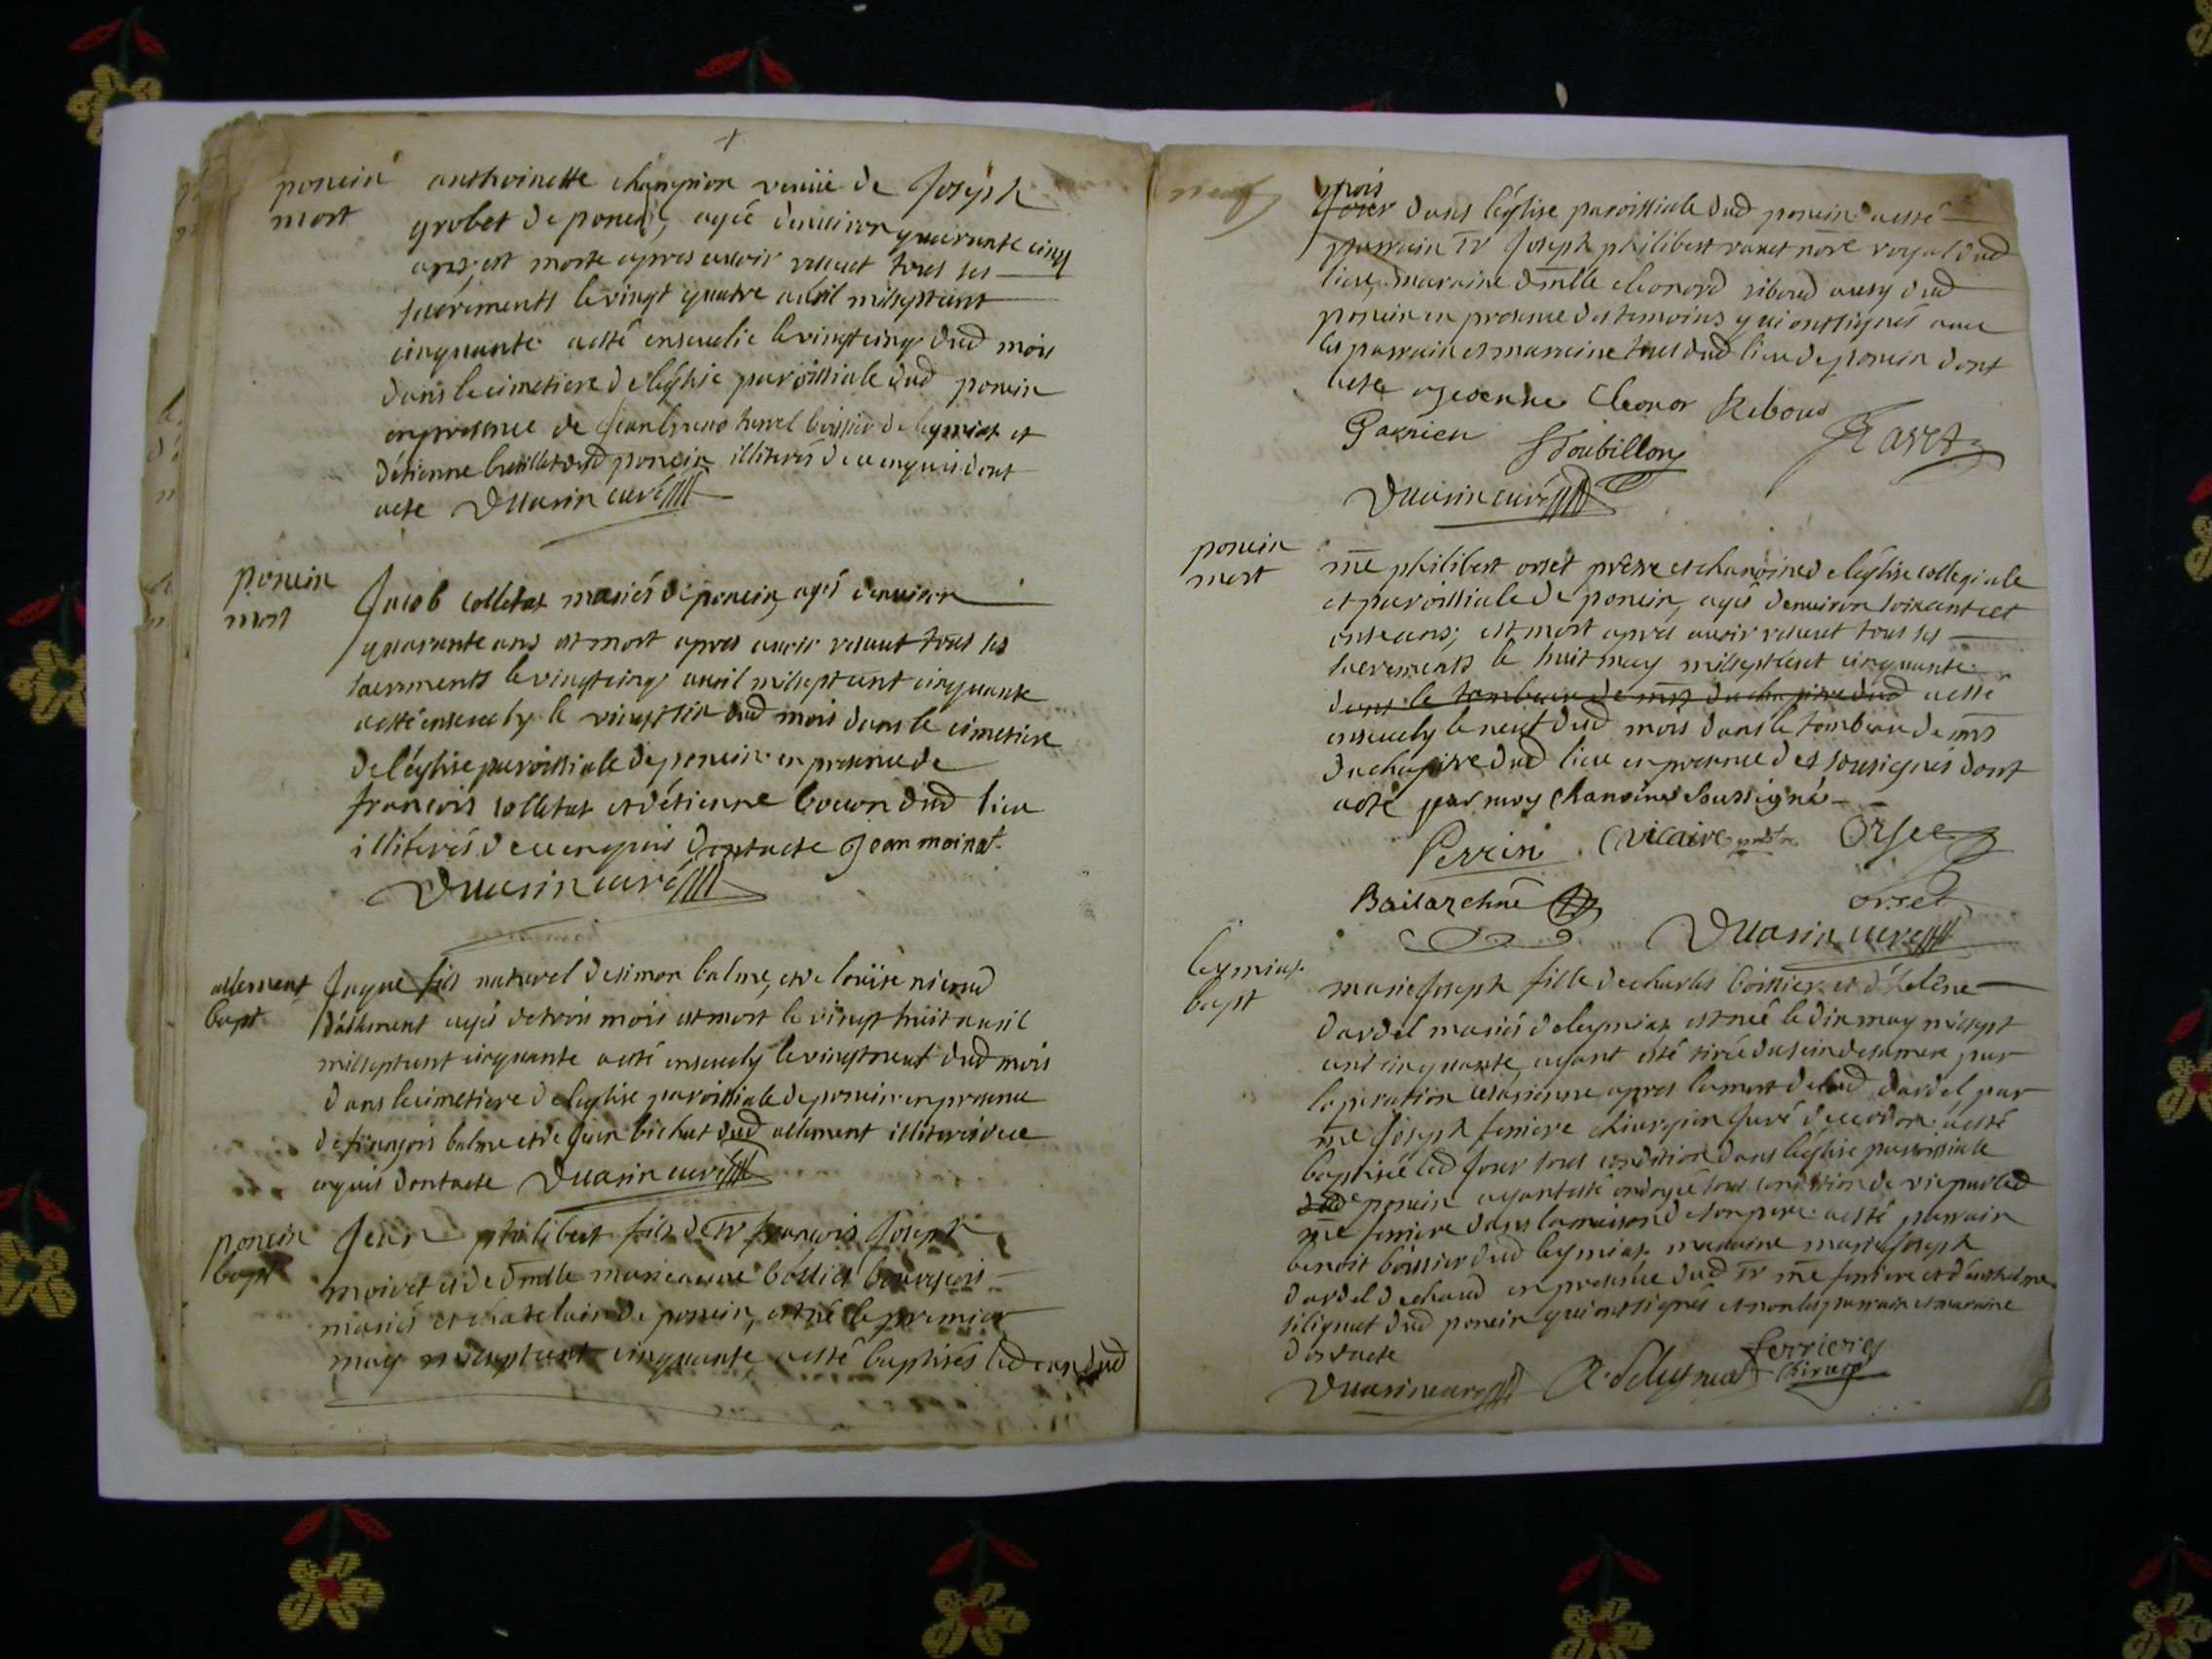 poncin anthoinette champion veuüe de Joseph
mort grobet de poncin, agée denuiron quarante cinq
ans est morte apres auoir reseut tous ses
sacrements le vingt quatre auril milseptcent
cinquante aesté enseuelie le vingtcinq dud mois
dans le cimetiere de leglise paroissiale dud poncin
en presence de Jean bruno turrel boissier de leymiat et
détienne breillet dud poncin illiterés de ce enquis dont
acte Duuasin curé
poncin Jacob colletat mariés de poncin, agé denuiron
mort quarante ans est mort apres auoir reseut tous ses
sacrements le vingtcinq auril milseptcent cinquante
aesté enseuely le vingtsix dud mois dans le cimetiere
de léglise paroissiale de poncin en presence de
francois colletat et détienne bouon dud lieu
illiterés de ce enquis dontacte Jean moinat
Duuasin curé
allement Jaque fils naturel de simon balme, et de loüise nierud
bapt dállement agé de trois mois est mort le vingt huit auril
milseptcent cinquante aesté enseuely le vingtneuf dud mois
dans le cimetiere de leglise paroissiale de poncin en presence
de françois balme et de Jean bichat dud allement illiterés de ce
enquis dontacte Duuasin curé
poncin Jean philibert fils de sr françois Joseph
bapt moiret et de dmlle marieanne bollies bourgeois
mariés et chatelain de poncin, est né le premier
may milseptcent cinquante aesté baptisés led an dud
mois
Jour dans léglise paroissiale dud poncin aesté
parrain sr Joseph philibert rauet nore royal dud
lieu, maraine dmlle eleonord riboud aussy dud
poncin en presence des temoins qui ont signés auec
les parrain et marraine tous dud lieu de poncin dont
acte Eleonor Riboud
Garnien Roubillon Ravet
Duuasin curé
poncin me philibert orset pretre et chanoine de léglise collegiale
mort et paroissiale de poncin, agé denuiron soixante et
onse ans, est mort aprés auoir reseut tous ses
sacrements le huit may milseptcent cinquante
dans le tombeau de mrs du chapitre dud aesté
enseuely le neuf dud mois dans le tombeau de mrs
du chapitre dud lieu en presence des sousignés dont
acte par moy chanoine soussigné
Perrin Vicaire Orset
Bailarchne orset
Duuasin curé
leymiat marie Joseph fille de charles boissier et d'helene
bapt dardel mariés de leymiat est née le dix may milsept
cent cinquante ayant esté tirée du sein de sa mere par
loperation cesarienne apres la mort de lad dardel par
me Joseph ferriere chirurgien Juré de cerdon aesté
baptisée led Jour sous condition dans léglise paroissiale
de poncin ayant esté ondoyée sous condition de vie par led
me ferriere dans la maison de son pere aesté parrain
benoit boissier dud leymiat maraine marie Joseph
dardel dechaud en presence dud sr me ferriere et d'anthelme
silignat dud poncin qui ont signés et non les parrain et maraine
dontacte ferrieres
Duuasin curé A. Seligniat chirurg